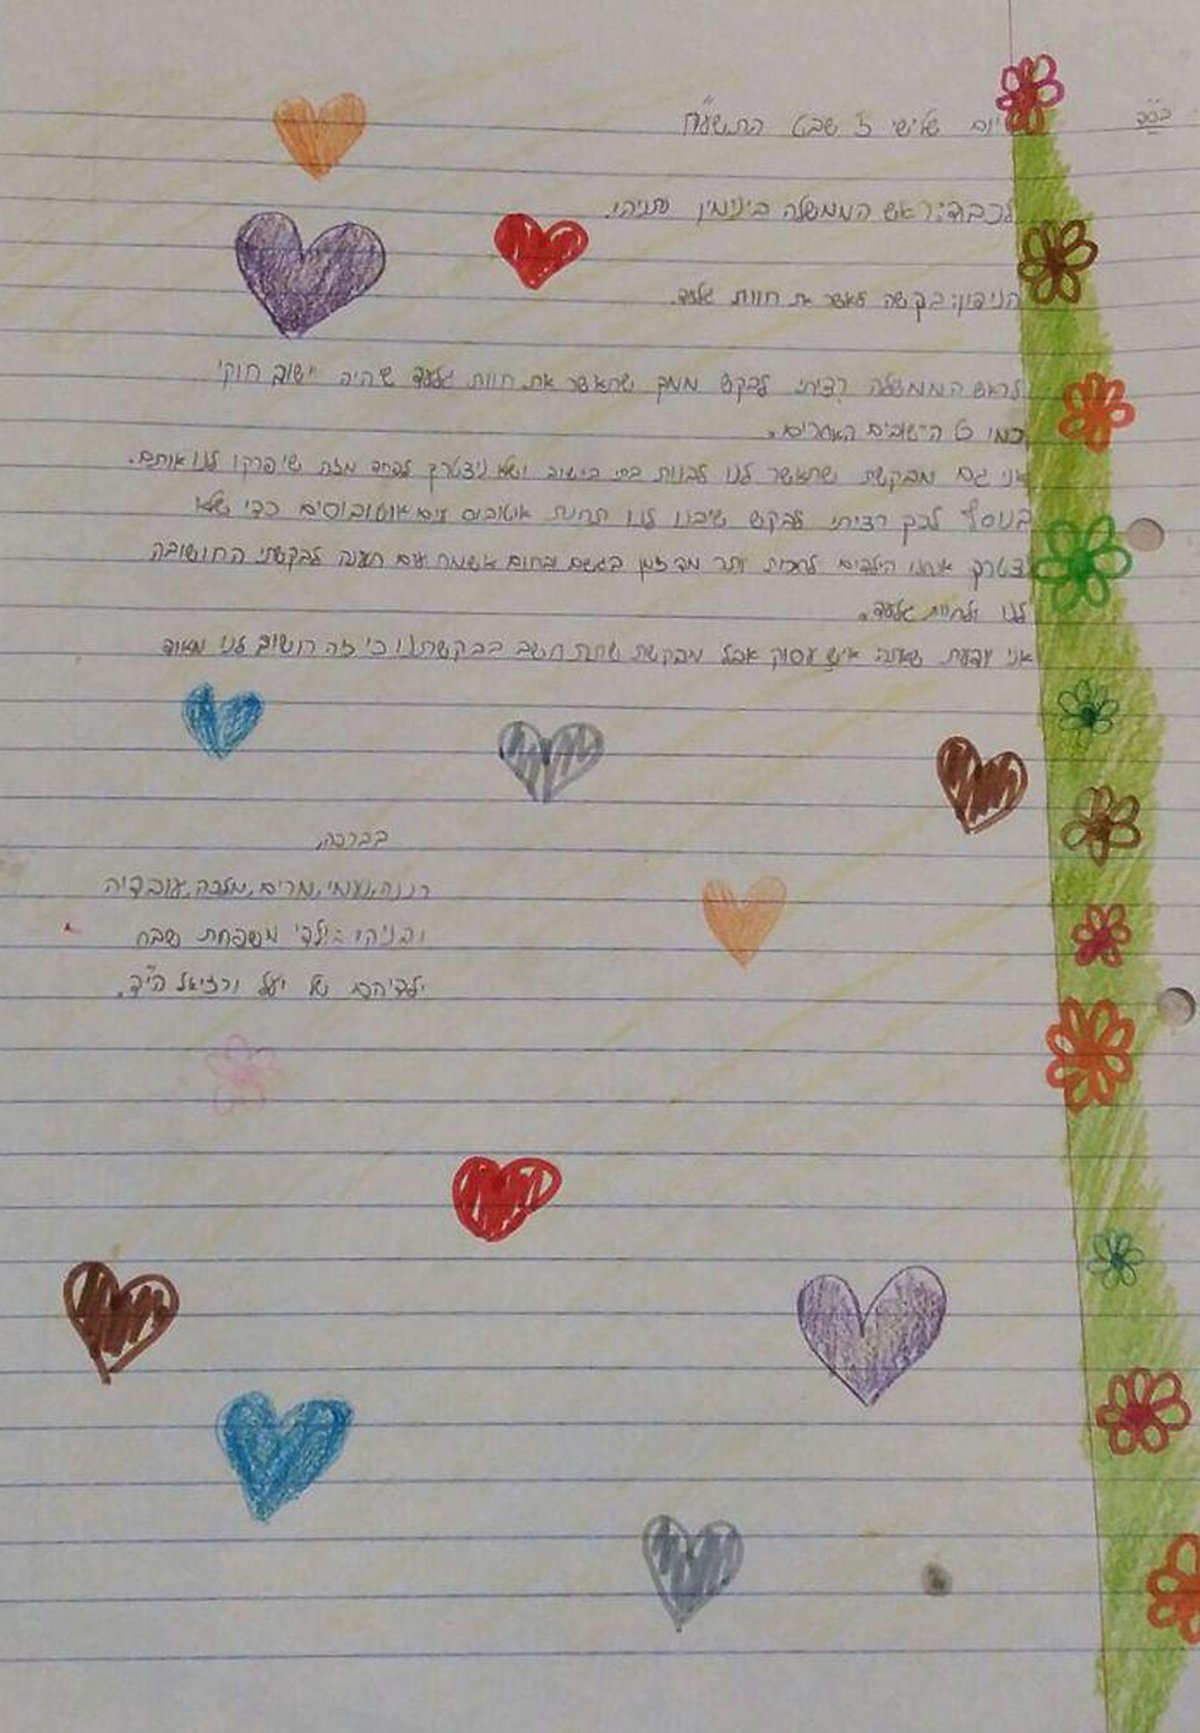 בס"ד
יום שלישי ז שבט התשע"ח
לכבוד: ראש הממשלה בינימין נתניהו.
הנידון: בקשה לאשר את חוות גלעד.
לראש הממשלה רציתי לבקש ממך שתאשר את חוות גלעד שיהיה יישוב חוקי
כמו כל הישובים האחרים.
אני גם מבקשת שתאשר לנו לבנות בתי הישוב ושלא ניצטרך לפחד מזה שיפרקו לנו אותם.
בנוסף לכך רציתי לבקש שיבנו לנו תחנת אוטובוס עים אוטובוסים כדי שלא
נצטרך אנחנו הילדים לחכות יותר מד זמן בגשם ובחום אשמח עם תענה לבקשתי החשובה
לנו ולחוות גלעד.
אני יודעת שאתה איש עסוק אבל מבקשת שתתחשב בבקשתנו כי זה חשוב לנו מאוד
בברכה,
רננה, נעמי, מרים, מלכה, עובדיה
ובניהו: ילדי משפחת שבח
ילדיהם של יעל ורזיאל הי"ד.